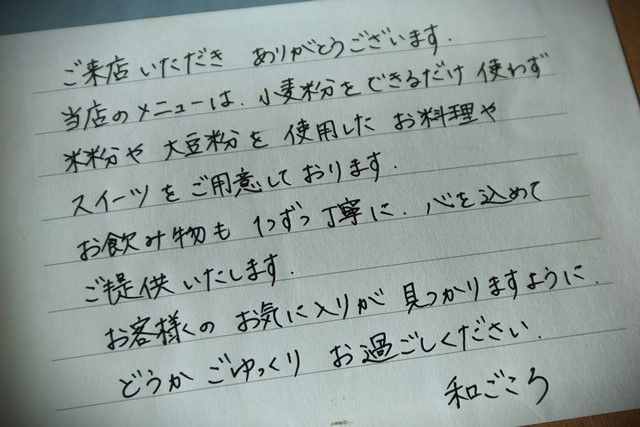 ご来店いただき ありがとうございます.
当店のメニューは. 小麦粉をできるだけ使わず
米粉や大豆粉を使用したお料理や
スイーツをご用意しております.
お飲み物も 1つずつ丁寧に. 心を込めて
ご提供いたします.
お客様くのお気に入りが見つかりますように.
どうかごゆっくりお過ごしください.
和ごころ